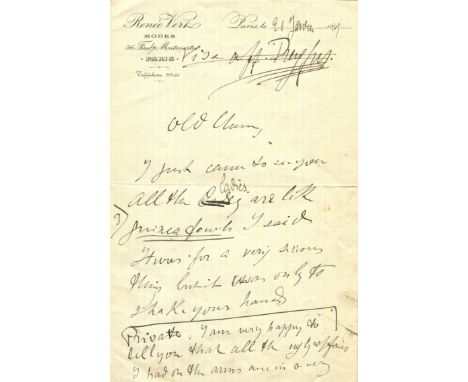 Renée Vert
MODES
56, Faubg Montmartre
PARIS
Téléphone
Paris le 21 Janv
Visa aff. Dreyfus
Old Chum,
I just came to see you
ladies
all the are like
3)
guinea fowls. I said
It was for a very serious
thing but it was only to
shake your hand
Private: I am very happy to
tell you that all the ugly affairs
I had on the arms are in a very